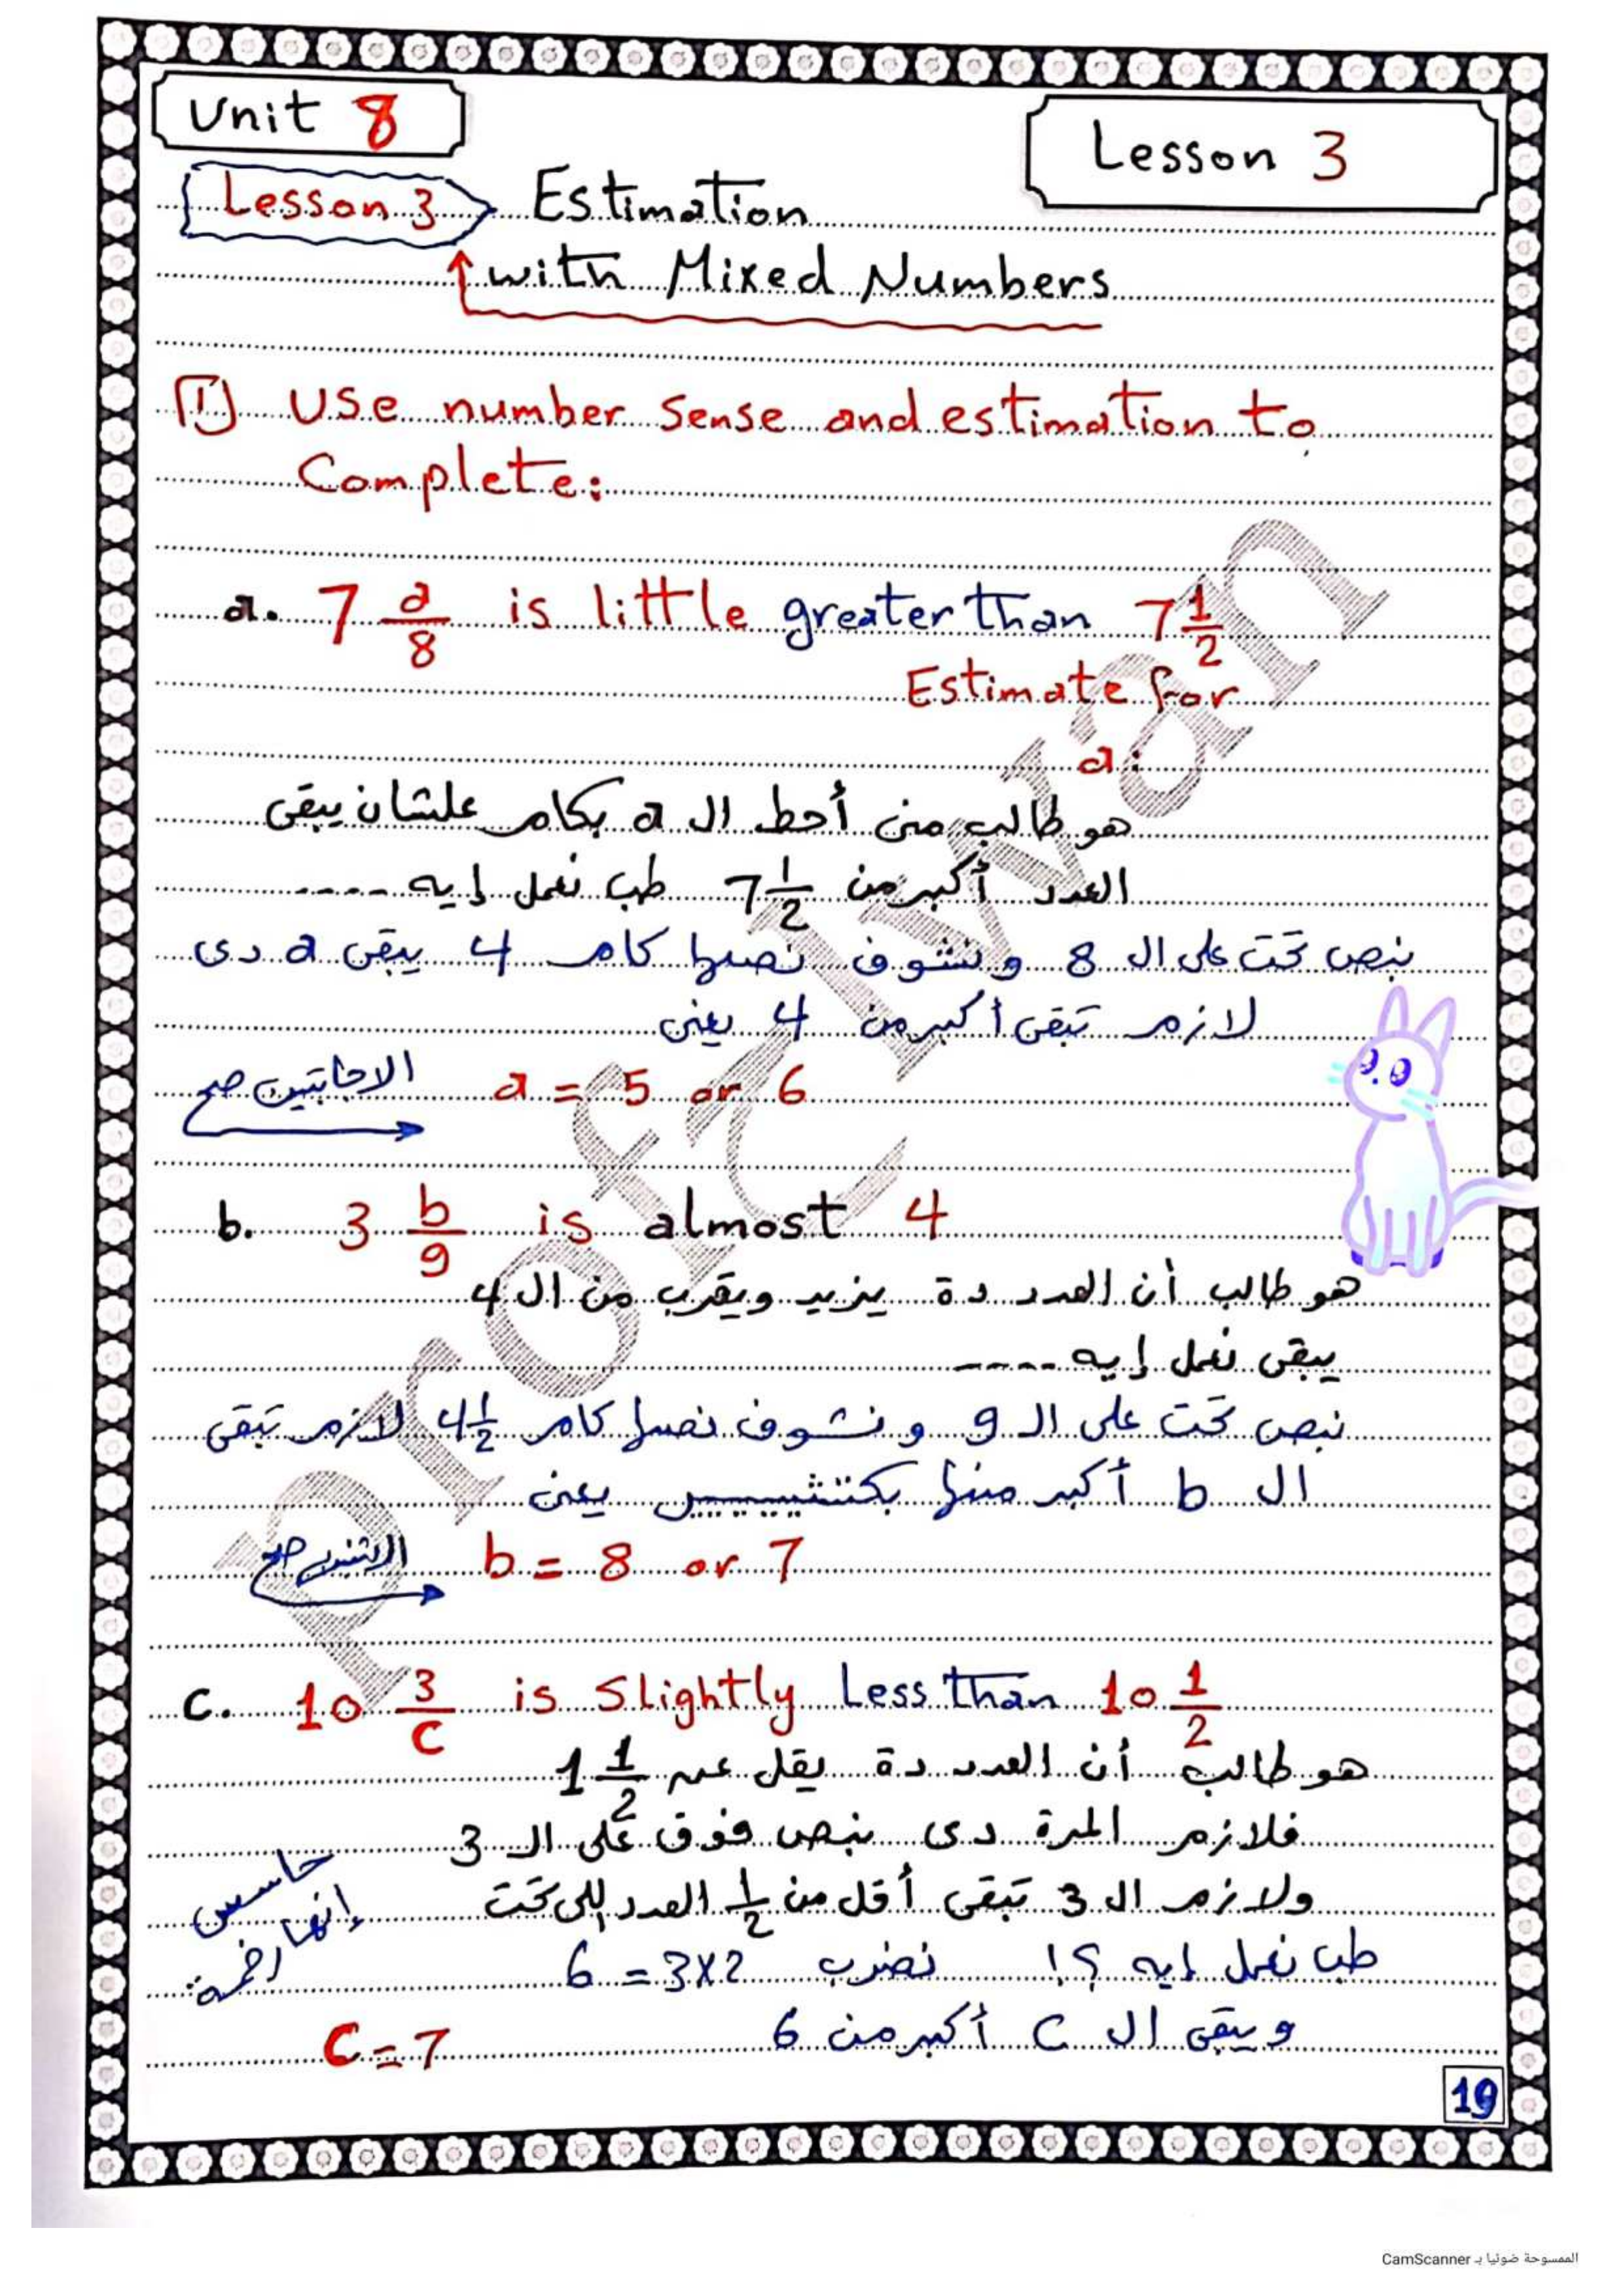 Unit 8
Lesson 3
Lesson 3 Estimation
with Mixed Numbers
1 Use number sense and estimation to
Complete:
a. 7 a/8 is little greater than 7 1/2
Estimate for
a:
هو طالب منى أحط ال a بكام علشان يبقى
العدد أكبر من 7 1/2 طب نعمل إيه ----
نبص تحت على ال 8 ونشوف نصها كام 4 يبقى a دى
لازم تبقى أكبر من 4 يعنى
a = 5 or 6 الاجابتين صح
b. 3 b/9 is almost 4
هو طالب أن العدد دة يزيد ويقرب من ال 4
يبقى نعمل إيه ----
نبص تحت على ال 9 ونشوف نصها كام 4 1/2 لازم تبقى
ال b أكبر منها بكتتثيييييير يعنى
b = 8 or 7 الاتنين صح
c. 10 3/C is Slightly Less than 10 1/2
هو طالب أن العدد دة يقل عن 1 1/2
فلازم المرة دى نبص فوق على ال 3
ولازم ال 3 تبقى أقل من 1/2 العدد اللى تحت
طب نعمل إيه ؟! نضرب 6 = 3x2
حاسس
إنها
ويبقى ال C أكبر من 6
C = 7
19
Prof Ivan
الممسوحة ضوئيا بـ CamScanner